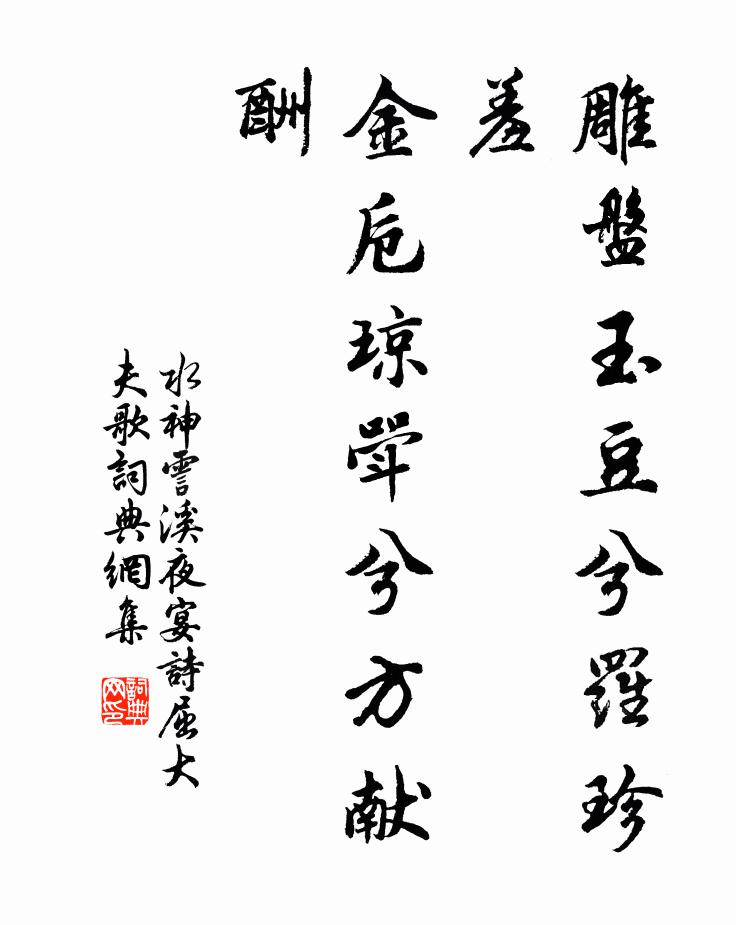 雕盤玉豆兮羅珍
羞
金卮琼斝兮方献
酬
水神雩溪夜宴詩屈大
夫歌詞典網集
詞典
网印